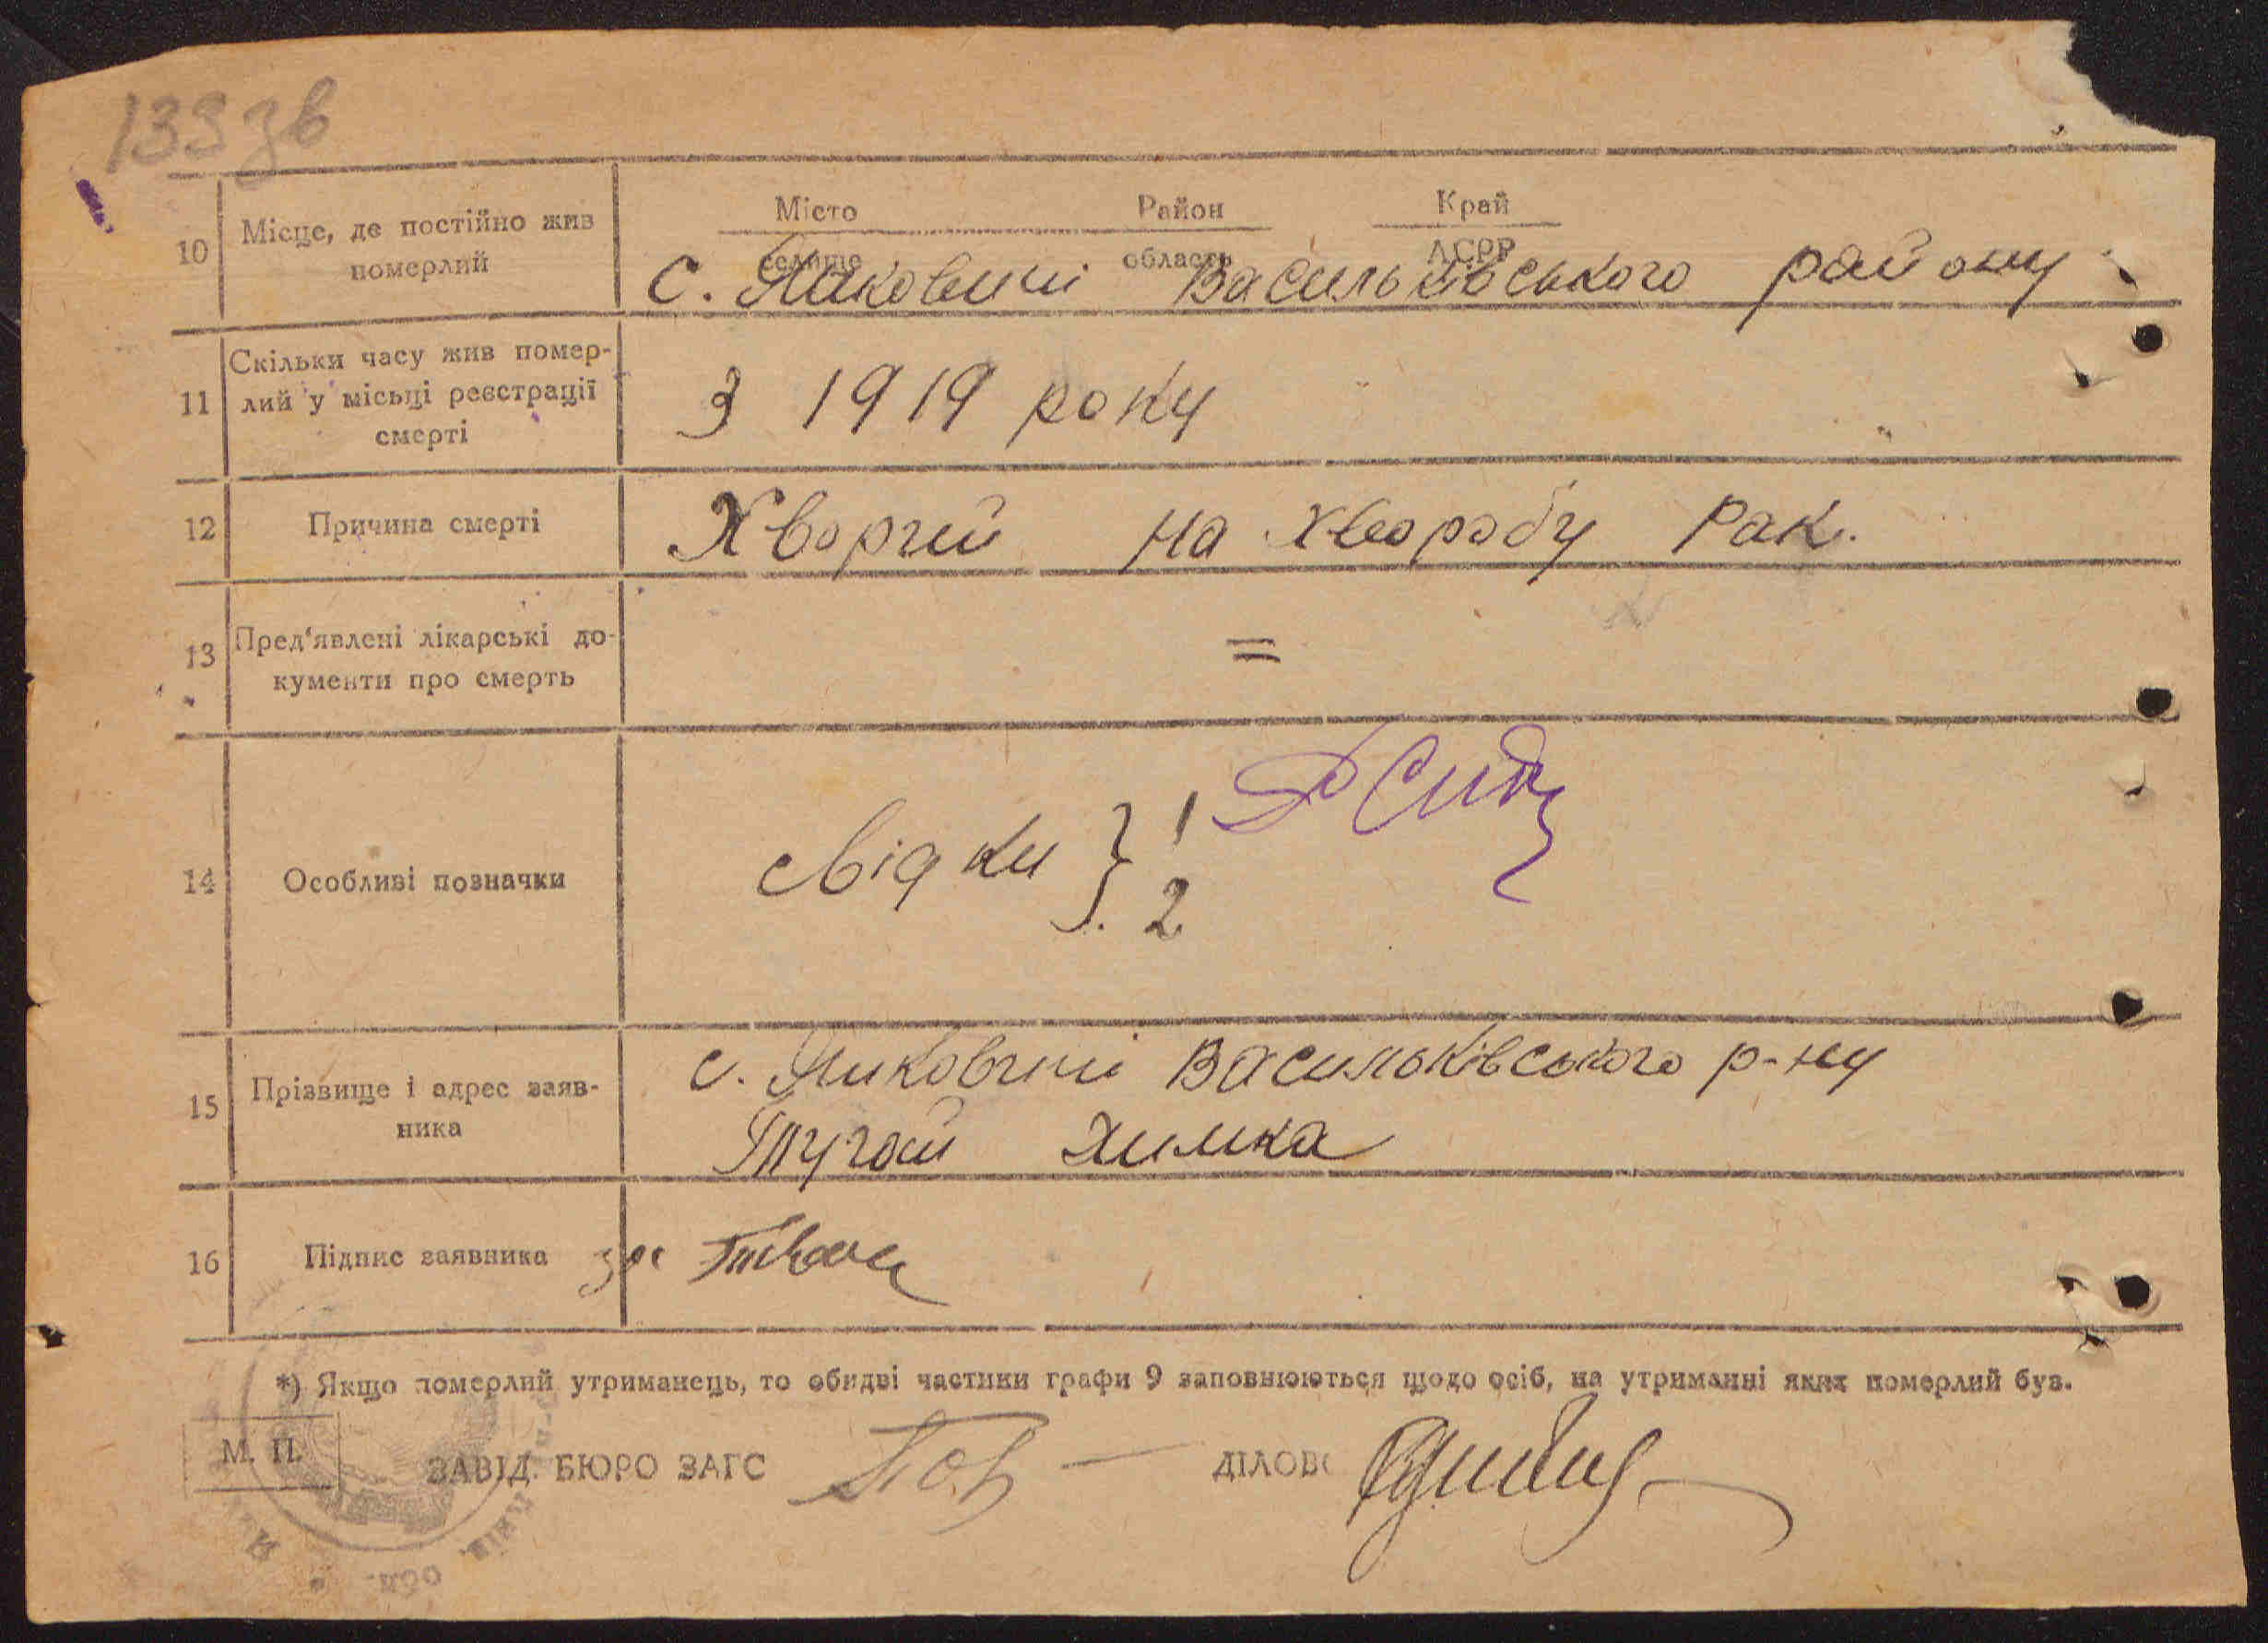 133 зв
Місто Район Край
10 Місце, де постійно жив
померлий
селище область АСРР
с. Яцковиці Васильківського району
Скільки часу жив помер-
11 лий у місьці реєстрації
смерті
З 1919 року
12 Причина смерті
Хворий на хворобу Рак.
13 Пред'явлені лікарські до-
кументи про смерть
=
14 Особливі позначки
свідки } 1
2
15 Прізвище і адрес заяв-
ника
с. Васильківського р-ну
Химка
16 Підпис заявника за
*) Якщо померлий утриманець, то обидві частини графи 9 заповнюються щодо осіб, на утриманні яких померлий був.
М. П.
ЗАВІД. БЮРО ЗАГС ДІЛОВ
обл.